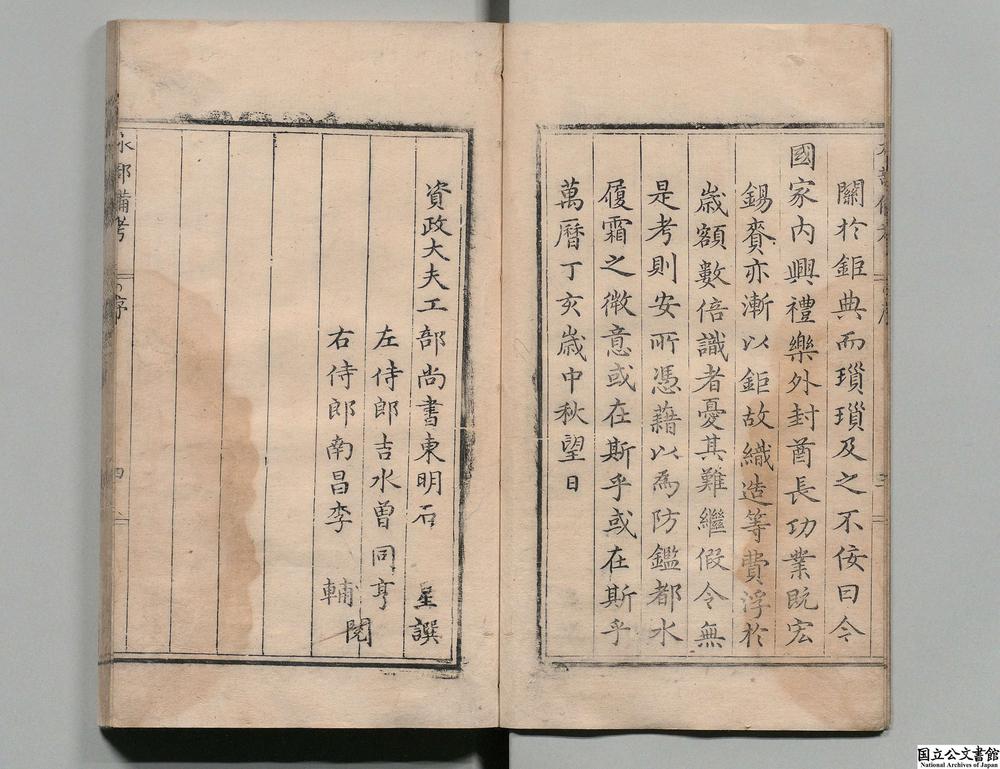 關於鉅典而瑣瑣及之不佞曰今
國家內興禮樂外封酋長功業既宏
錫賚亦漸以鉅故織造等費浮於
歲額數倍識者憂其難繼假令無
是考則安所憑藉以為防鑑都水
履霜之微意或在斯乎或在斯乎
萬曆丁亥歲中秋望日
資政大夫工部尚書東明石星譔
左侍郎吉水曾同亨
右侍郎南昌李輔閱
水部備考
序
四
国立公文書館
National Archives of Japan